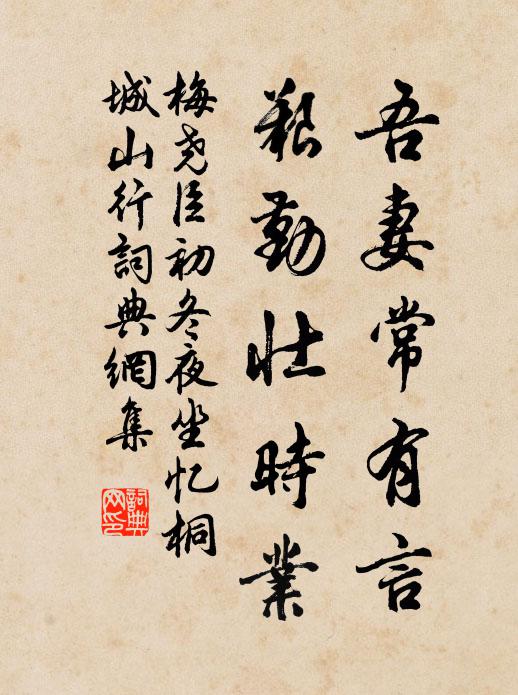 吾妻常有言
艱勤壮時業
梅尧臣初冬夜坐忆桐
城山行詞典網集
詞典网印